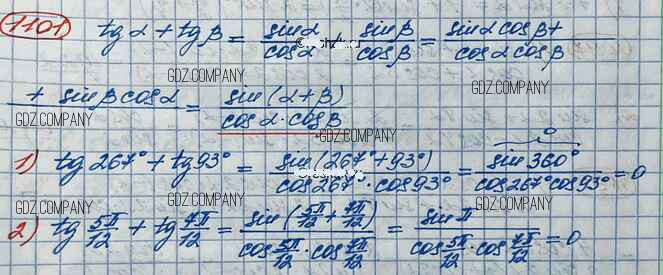 1101 tg α + tg β = sin α / cos α + sin β / cos β = sin α cos β + / cos α cos β
GDZ.COMPANY
GDZ.COMPANY
+ sin β cos α / = sin (α + β) / cos α · cos β
GDZ.COMPANY
GDZ.COMPANY
1) tg 267° + tg 93° = sin (267° + 93°) / cos 267° · cos 93° = sin 360° / cos 267° cos 93° = 0
0
GDZ.COMPANY
GDZ.COMPANY
2) tg 5π/12 + tg 7π/12 = sin (5π/12 + 7π/12) / cos 5π/12 · cos 7π/12 = sin π / cos 5π/12 · cos 7π/12 = 0
GDZ.COMPANY
GDZ.COMPANY